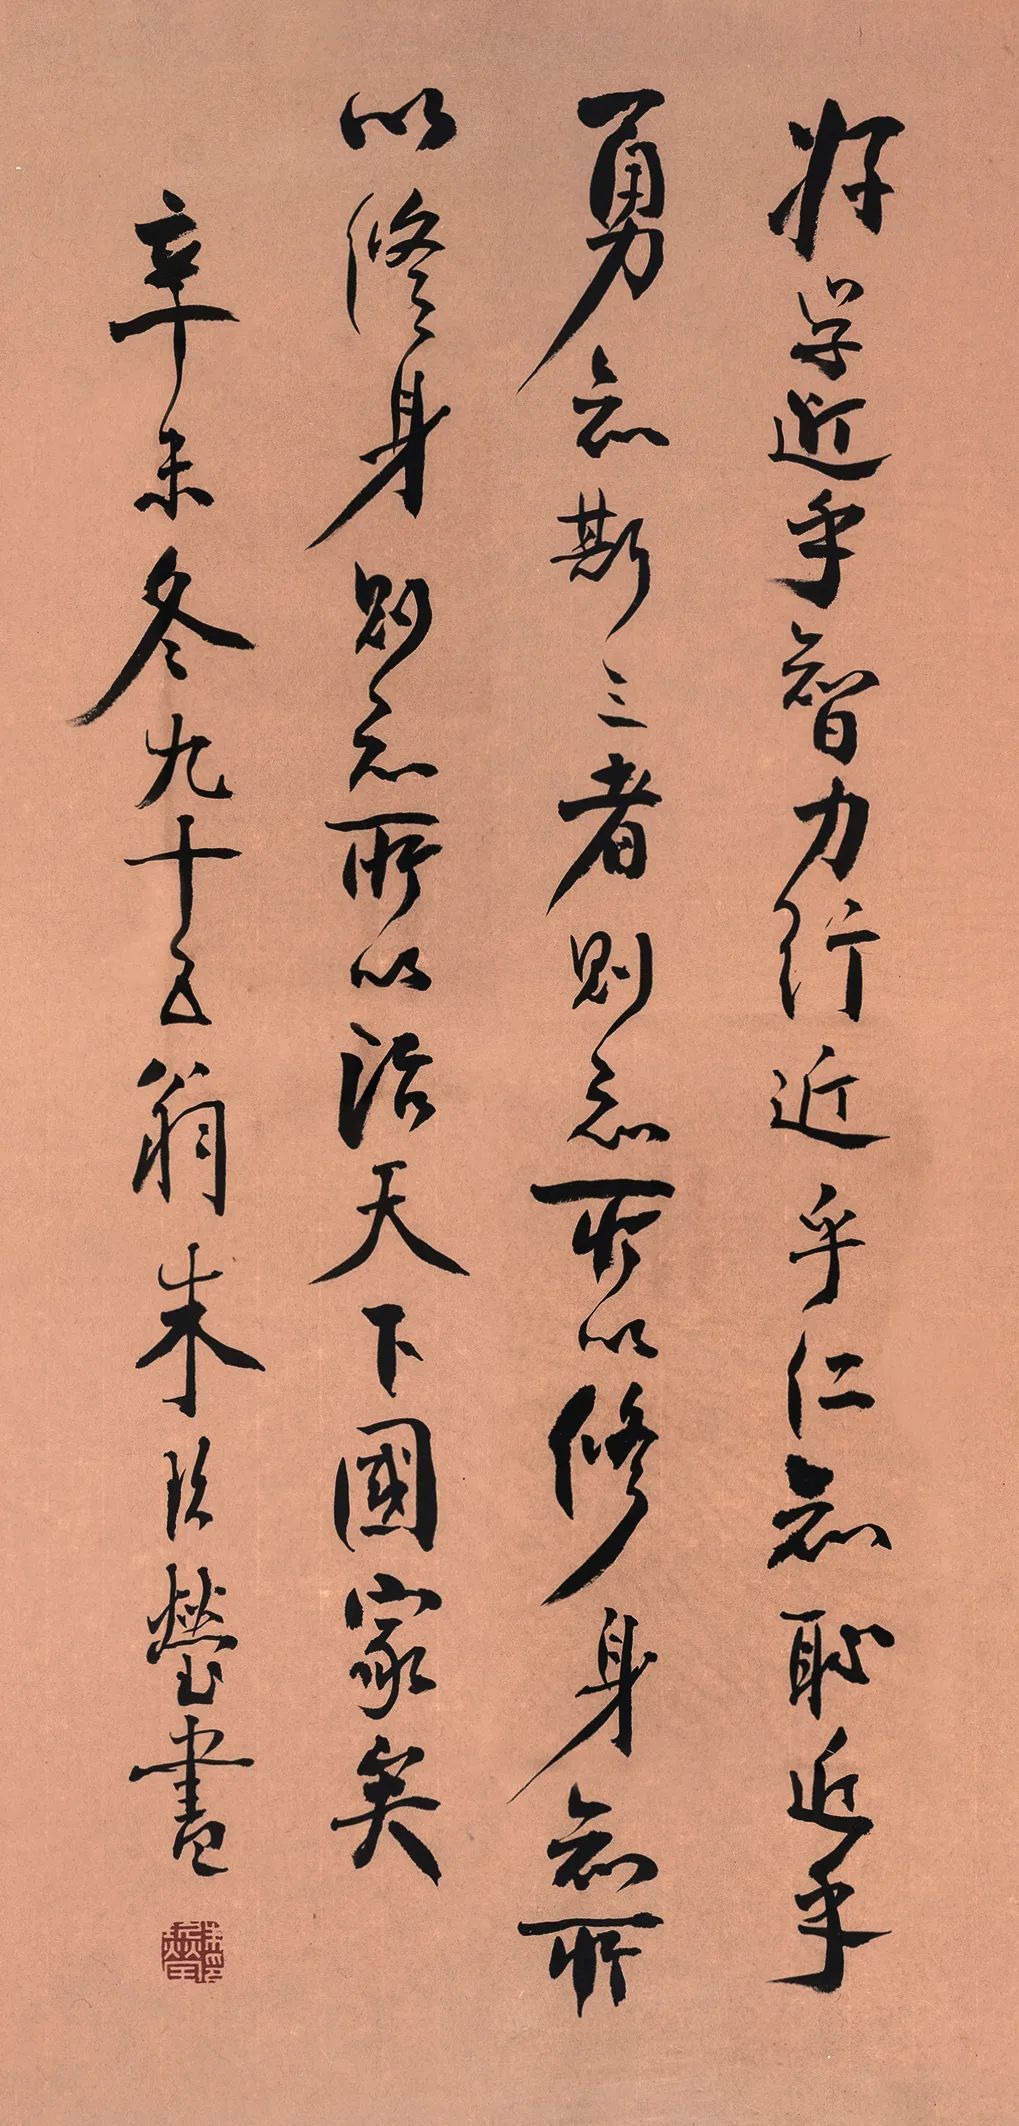 好学近乎智力行近乎仁知耻近乎
勇知斯三者则知所以修身知所
以修身则知所以治天下國家矣
辛未冬九十五翁朱玖瑩書